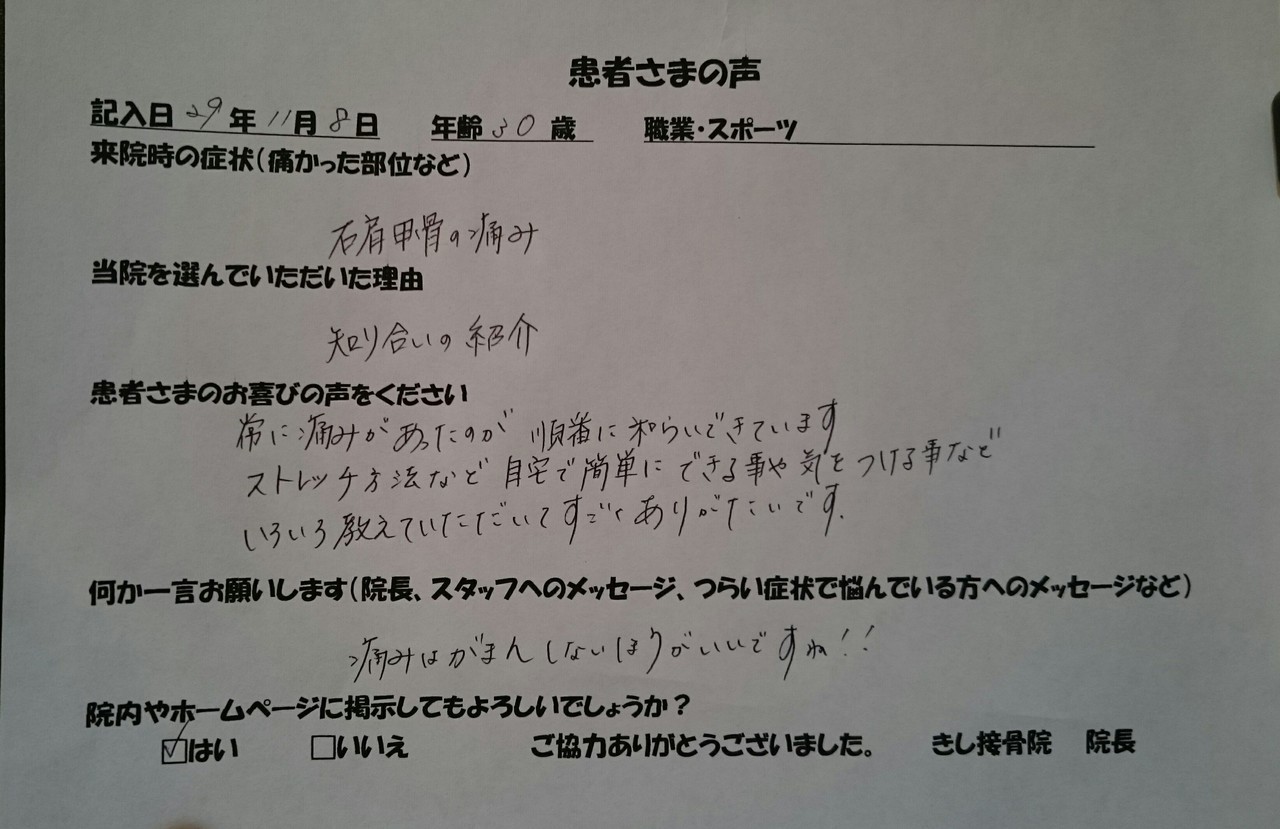 患者さまの声
記入日 29年 11月 8日 年齢 30 歳 職業・スポーツ
来院時の症状(痛かった部位など)
右肩甲骨の痛み
当院を選んでいただいた理由
知り合いの紹介
患者さまのお喜びの声をください
常に痛みがあったのが 順番に和らいできています
ストレッチ方法など 自宅で簡単に できる事や 気をつける事など
いろいろ教えていただいて すごく ありがたいです.
何か一言お願いします(院長、スタッフへのメッセージ、つらい症状で悩んでいる方へのメッセージなど)
痛みはがまんしないほうがいいですね!!
院内やホームページに掲示してもよろしいでしょうか?
☑はい □いいえ ご協力ありがとうございました。 きし接骨院 院長